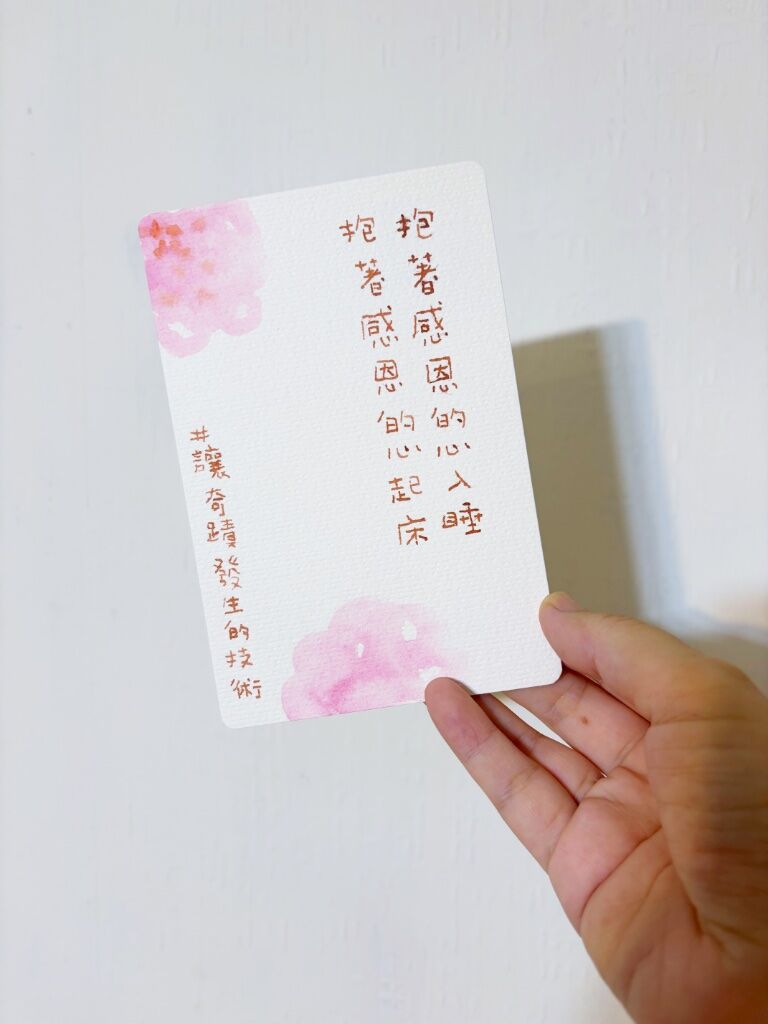 抱著感恩的心入睡
抱著感恩的心起床
#讓奇蹟發生的技術